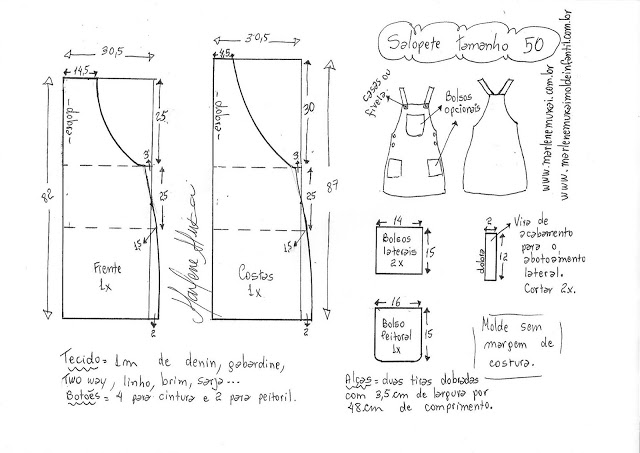 Salopete tamanho 50
www.marlenemukai.com.br
www.marlenemukaimoldeinfantil.com.br
30,5
14,5
dobra
25
3
82
25
1,5
Frente
1x
2
30,5
4,5
dobra
30
3
87
25
1,5
Costas
1x
2
Marlene Mukai
casas ou
fivela
Bolsos
opcionais
14
Bolsos
laterais
2x
15
2
dobra
12
Vira de
acabamento
para o
abotoamento
lateral.
Cortar 2x.
16
Bolso
Peitoral
1x
15
Molde sem
margem de
costura.
Tecido = 1m de denin, gabardine,
Two way, linho, brim, sarja...
Botões = 4 para cintura e 2 para peitoril.
Alças = duas tiras dobradas
com 3,5cm de largura por
48cm de comprimento.